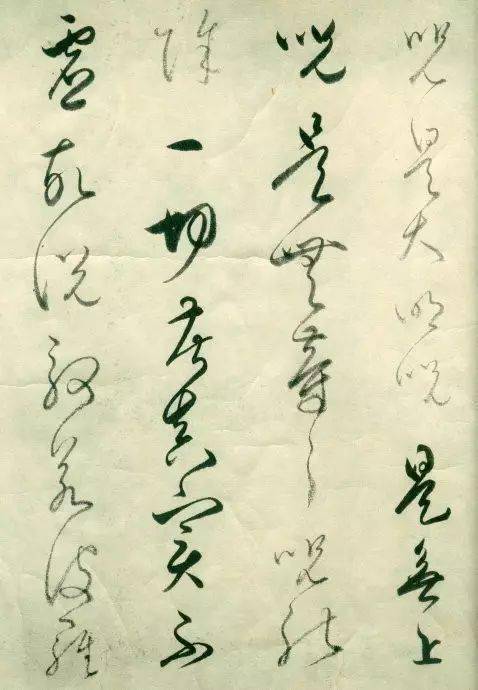 呪是大明呪是無上
呪是無等々呪能
除一切苦真實不
虛故說般若波羅